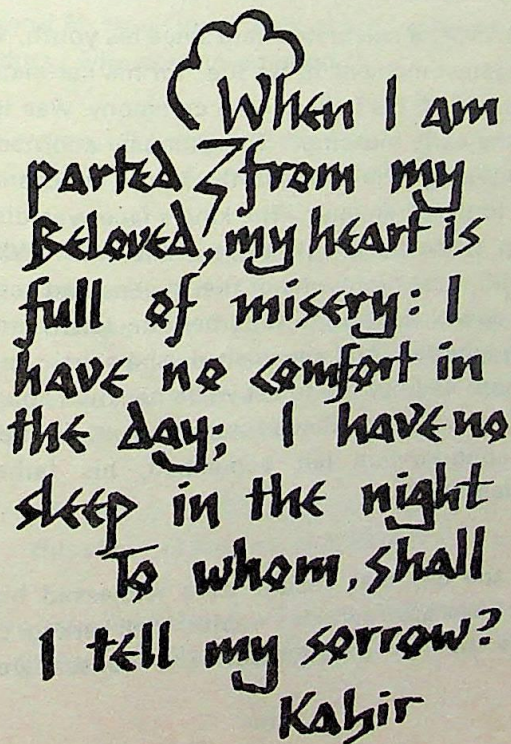 When I am
parted from my
Beloved, my heart is
full of misery: I
have no comfort in
the day; I have no
sleep in the night
To whom, shall
I tell my sorrow?
Kabir